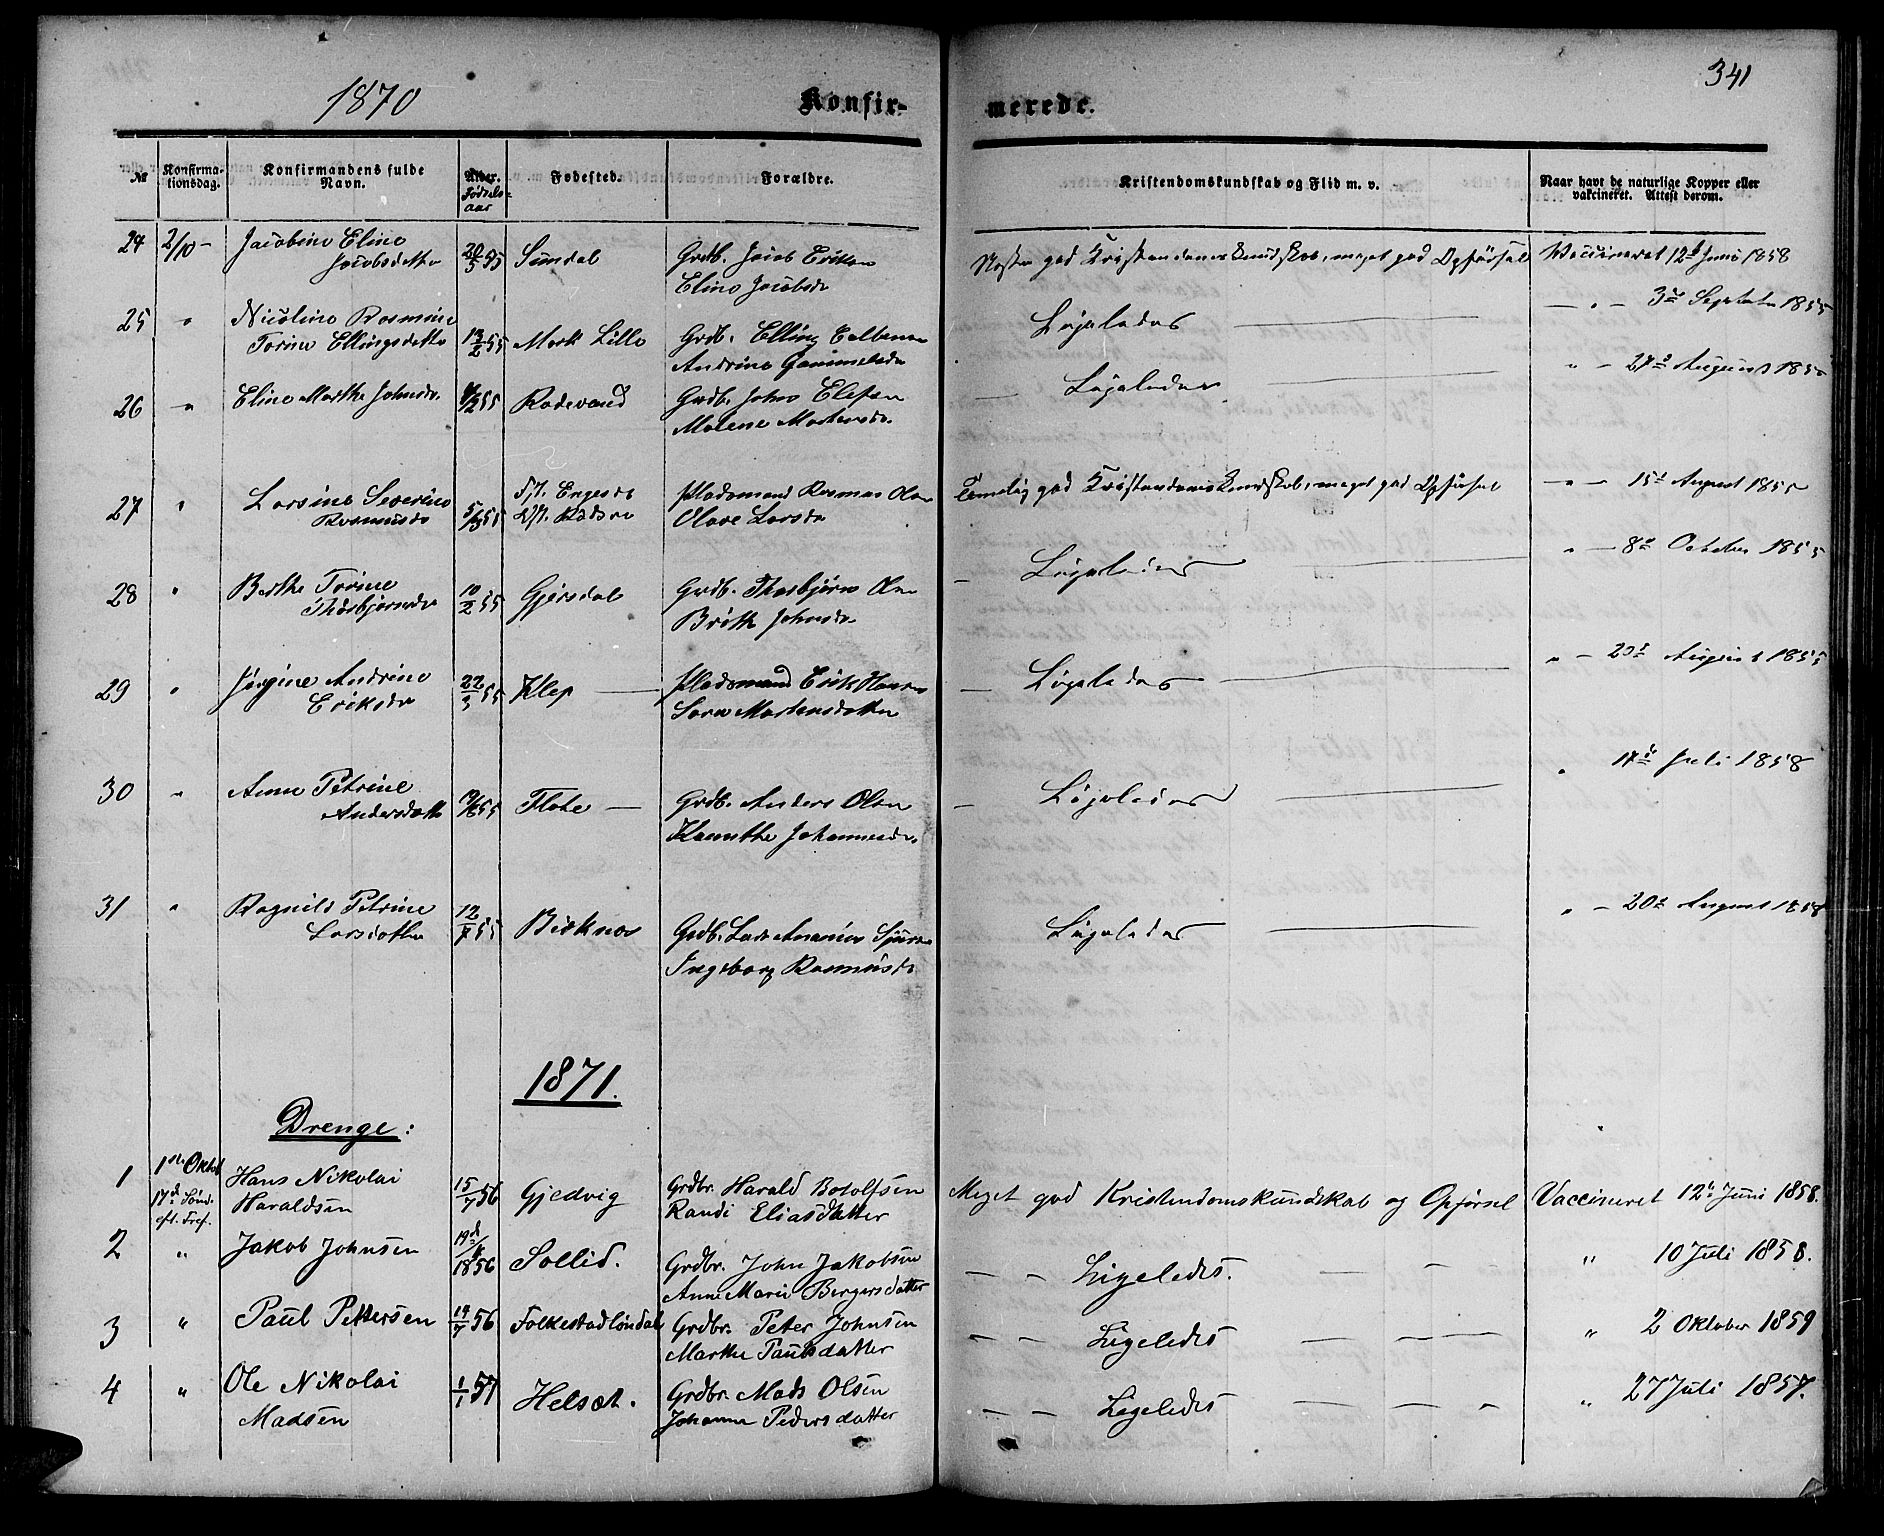 341
1870
Konfir-
merede.
№
Konfirma-
tionsdag.
Konfirmandens fulde
Navn.
Alder.
Fødsels-
aar
Fødested.
Forældre.
Kristendomskundskab og Flid m. v.
Naar havt de naturlige Kopper eller
vakcineret. Attest derom.
24 2/10 - Jacobine Eline
Jacobsdatter
20/5 55 Sundal Grdb. Jacob Eriksen
Eline Jacobsdr
god Kristendomskundskab, meget god Opførsel Vaccineret 12t Juni 1858
25 " Nicoline Rasmine
Torine Ellingsdatter
13/2 55 Mork Lille Grdb. Elling
Andrine
Ligeledes
— " — 3de Septebr 1855
26 " Eline Marthe Johnsdr.
55 Rødevand Grdb. John Elefsen
Malene Mortensdr.
— Ligeledes
" — 27de August 1855
27 " Larsine Severine
Rasmusdr
55 Fst. Engeset
Pladsmand Rasmus Olsen
Olave Larsdr
Temelig god Kristendomskundskab, meget god Opførsel — " — 15de August 1855
28 " Berthe Torine
Thorbjørnsdr
10/2 55 Gjersdal Grdb. Thorbjørn Olsen
Brith Johnsdr
— Ligeledes
" — 8de October 1855
29 " Jørgine Andrine
Eriksdr
22/3 55 Klep — Pladsmand Erik Hansen
Sara Martensdatter
— Ligeledes
" — August 1855
30 " Anne Petrine
Andersdatter
55 Flote — Grdb. Anders Olsen
Johannesdr.
— Ligeledes
" 17de Juli 1858
31 " Ragnild Petrine
Larsdatter
12/7 55 Birknes Grdb. Lars Ananias
Ingeborg Rasmusdr
Ligeledes
" — 20de August 1858
1871.
Drenge:
1 1ste Oktob
17d Sønd.
eft. Tref.
Hans Nikolai
Haraldsen
15/7 56 Gjedvig Grdbr. Harald Botolfsen
Randi Eliasdatter
Meget god Kristendomskundskab og Opførsel Vaccineret 12te Juni 1858.
2 " Jakob Johnsen 1856 Sollid. Grdbr. John Jakobsen
Anne Marie Bergersdatter
— — Ligeledes. — — " 10 Juli 1858.
3 " Paul Pettersen 19/7 56 Folkestadløndal Grdbr. Peter Johnsen
Marthe Paulsdatter
— — Ligeledes — — — " 2 Oktober 1859
4 " Ole Nikolai
Madsen
1/1 57 Helset. Grdbr. Mads Olsen
Johanne Pedersdatter
— — Ligeledes — — — " 27 Juli 1857.